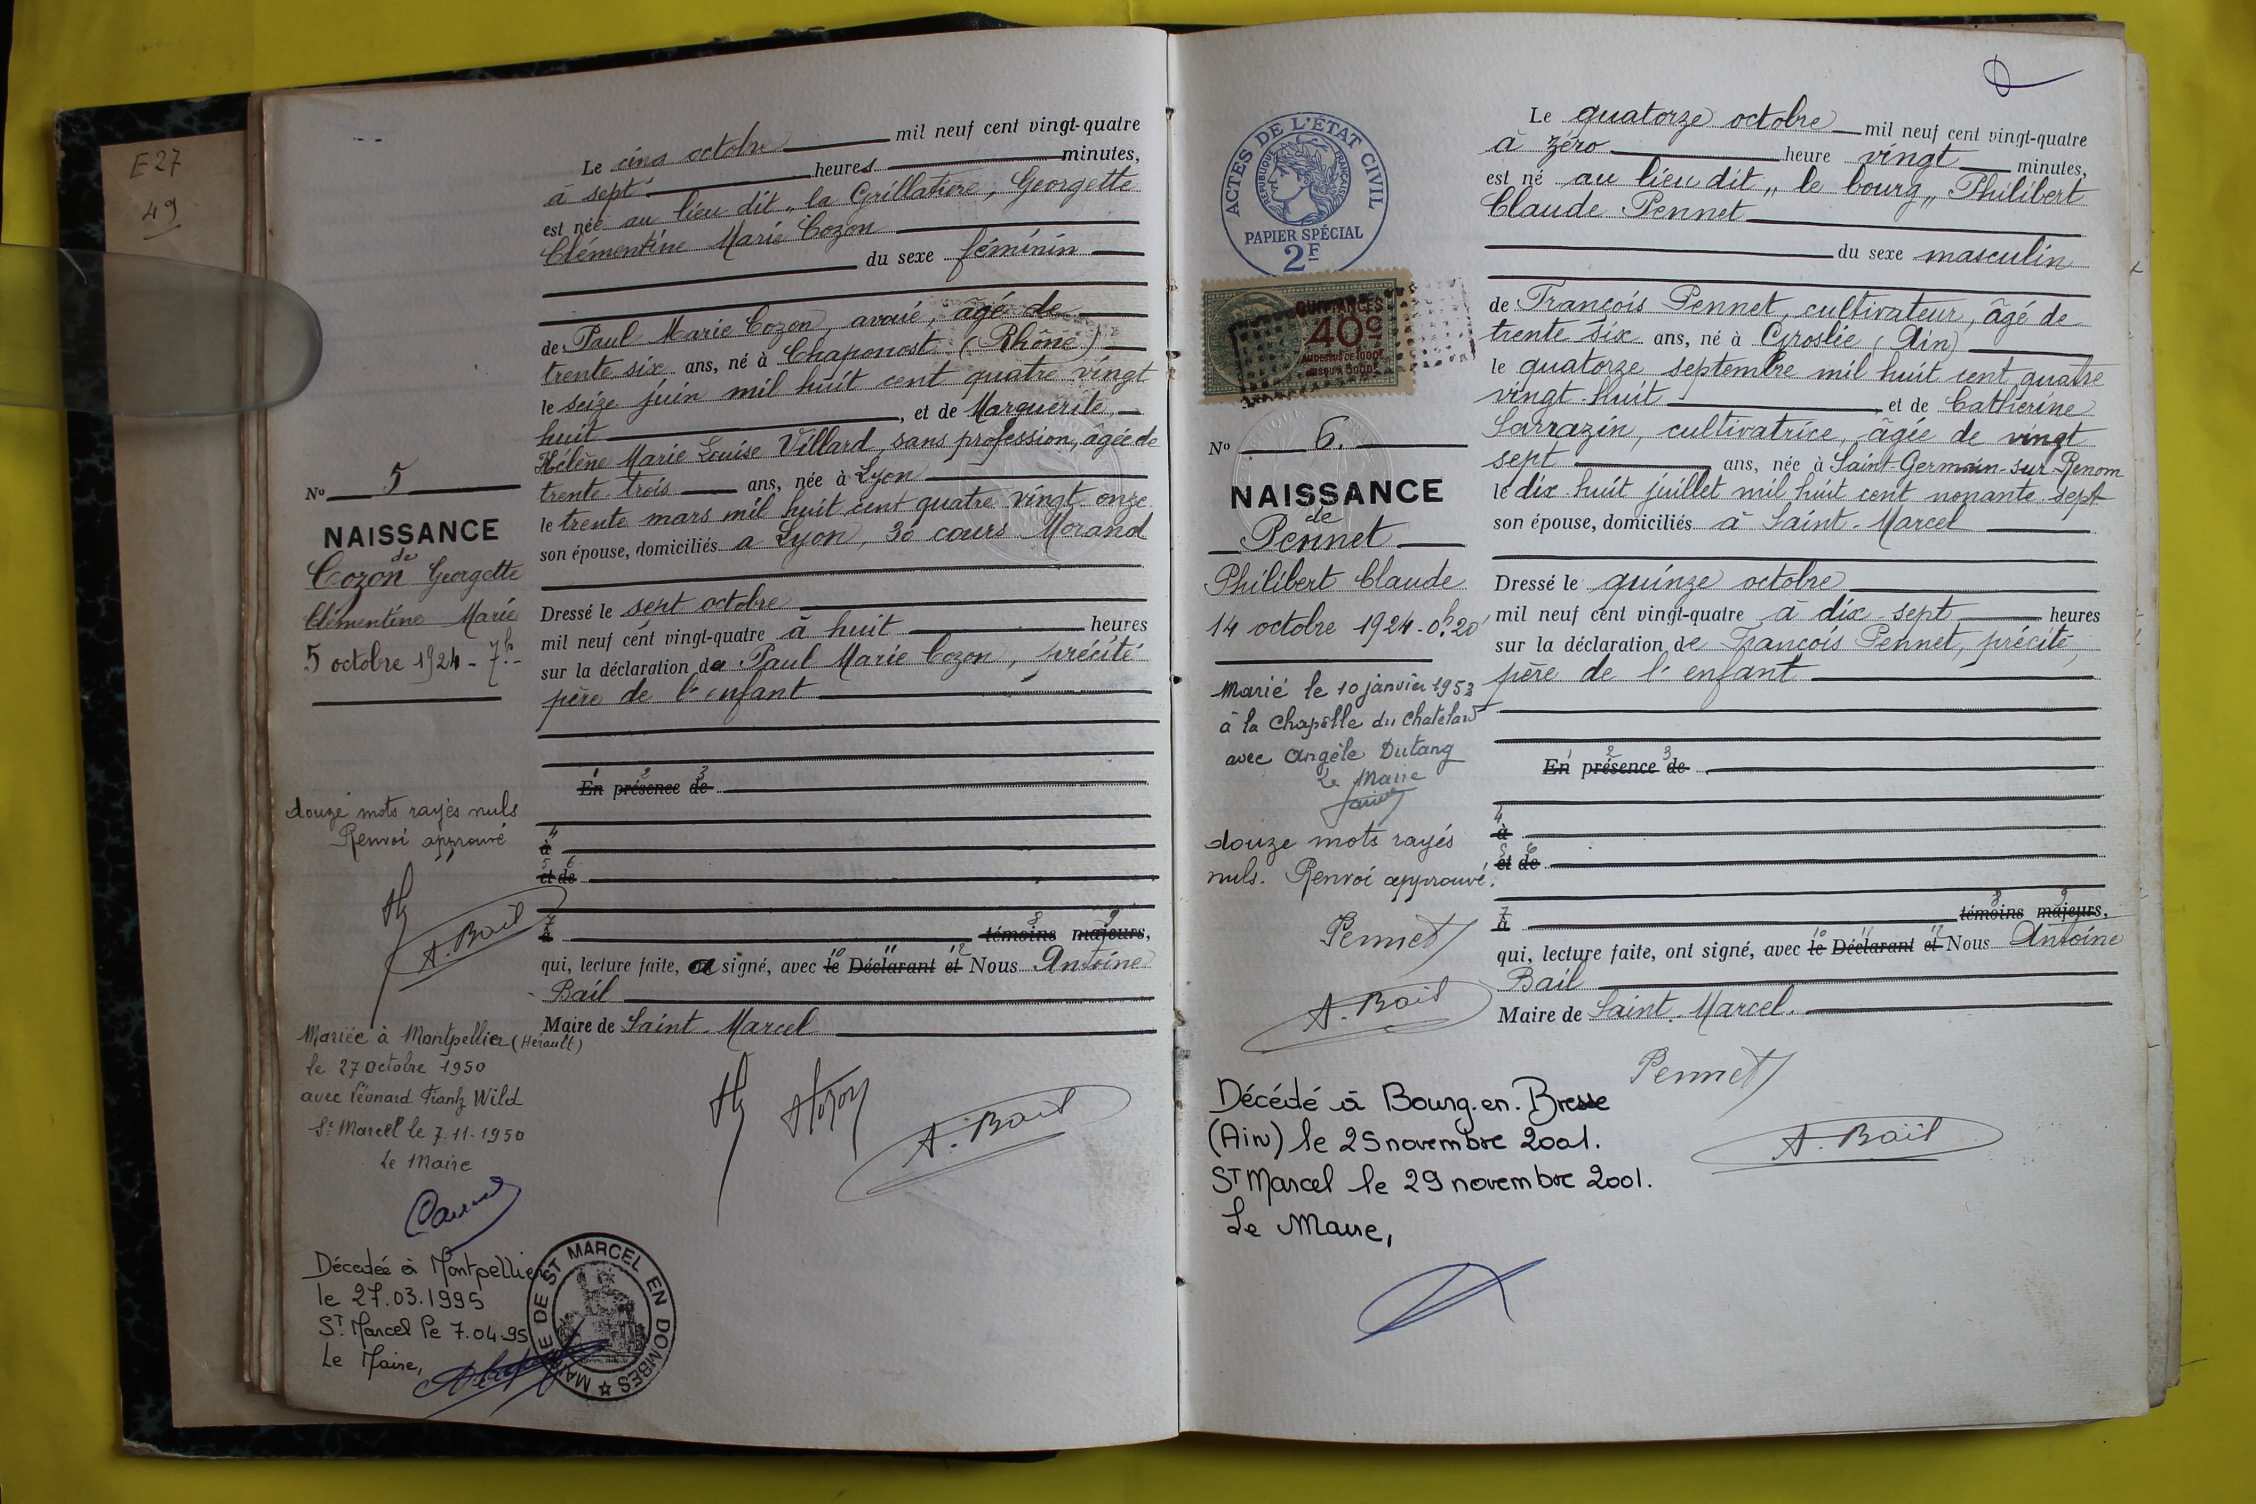 E27
49
Le cinq octobre mil neuf cent vingt-quatre
à sept heures minutes,
est née au lieu dit „ la Grillatière, Georgette
Clémentine Marie Cozon
du sexe féminin
de Paul Marie Cozon, avoué, âgé de
trente six ans, né à Chaponost (Rhône)
le seize juin mil huit cent quatre vingt
huit, et de Marguerite,
Hélène Marie Louise Villard, sans profession, âgée de
trente trois ans, née à Lyon
le trente mars mil huit cent quatre vingt onze
son épouse, domiciliés à Lyon, 30 cours Morand
Dressé le sept octobre
mil neuf cent vingt-quatre à huit heures
sur la déclaration de Paul Marie Cozon, précité
père de l'enfant
1 2 3
En présence de
4
à
5 6
et de
7 8 9
à témoins majeurs,
10 11 12
qui, lecture faite, signé, avec le Déclarant et Nous Antoine
Bail
Maire de Saint-Marcel
A. Bail
No 5
NAISSANCE
de
Cozon Georgette
Clémentine Marie
5 octobre 1924 - 7h-
douze mots rayés nuls
Renvoi approuvé
A. Bail
Mariée à Montpellier (Hérault)
le 27 octobre 1950
avec Léonard Frantz Wild
St Marcel le 7.11.1950
Le Maire
Décédée à Montpellier
le 27.03.1995
ST Marcel le 7.04.95
Le Maire,
MAIRIE DE ST MARCEL EN DOMBES
ACTES DE L'ÉTAT CIVIL
RÉPUBLIQUE FRANÇAISE
PAPIER SPÉCIAL
2F
QUITTANCES
40c
AU DESSUS DE 1000F
JUSQU'A 3000F
No 6.
NAISSANCE
de
Pennet
Philibert Claude
14 octobre 1924-0h.20'
Marié le 10 janvier 1953
à la Chapelle du Chatelard
avec Angèle Dutang
Le Maire
douze mots rayés
nuls. Renvoi approuvé.
Pennet
A. Bail
Le quatorze octobre mil neuf cent vingt-quatre
à zéro heure vingt minutes,
est né au lieu dit „ le bourg „ Philibert
Claude Pennet
du sexe masculin
de François Pennet, cultivateur, âgé de
trente six ans, né à Groslée (Ain)
le quatorze septembre mil huit cent quatre
vingt-huit et de Catherine
Sarrazin, cultivatrice, âgée de vingt
sept ans, née à Saint-Germain-sur Renom
le dix huit juillet mil huit cent nonante sept
son épouse, domiciliés à Saint-Marcel
Dressé le quinze octobre
mil neuf cent vingt-quatre à dix sept heures
sur la déclaration de François Pennet, précité,
père de l'enfant
1 2 3
En présence de
4
à
5 6
et de
7 8 9
à témoins majeurs,
10 11 12
qui, lecture faite, ont signé, avec le Déclarant et Nous Antoine
Bail
Maire de Saint-Marcel.
Pennet
A. Bail
Décédé à Bourg.en.Bresse
(Ain) le 25 novembre 2001.
ST Marcel le 29 novembre 2001.
Le Maire,